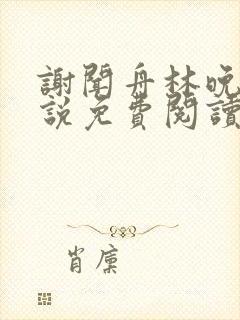 謝聞舟林晚
說免費閱讀
肖廩